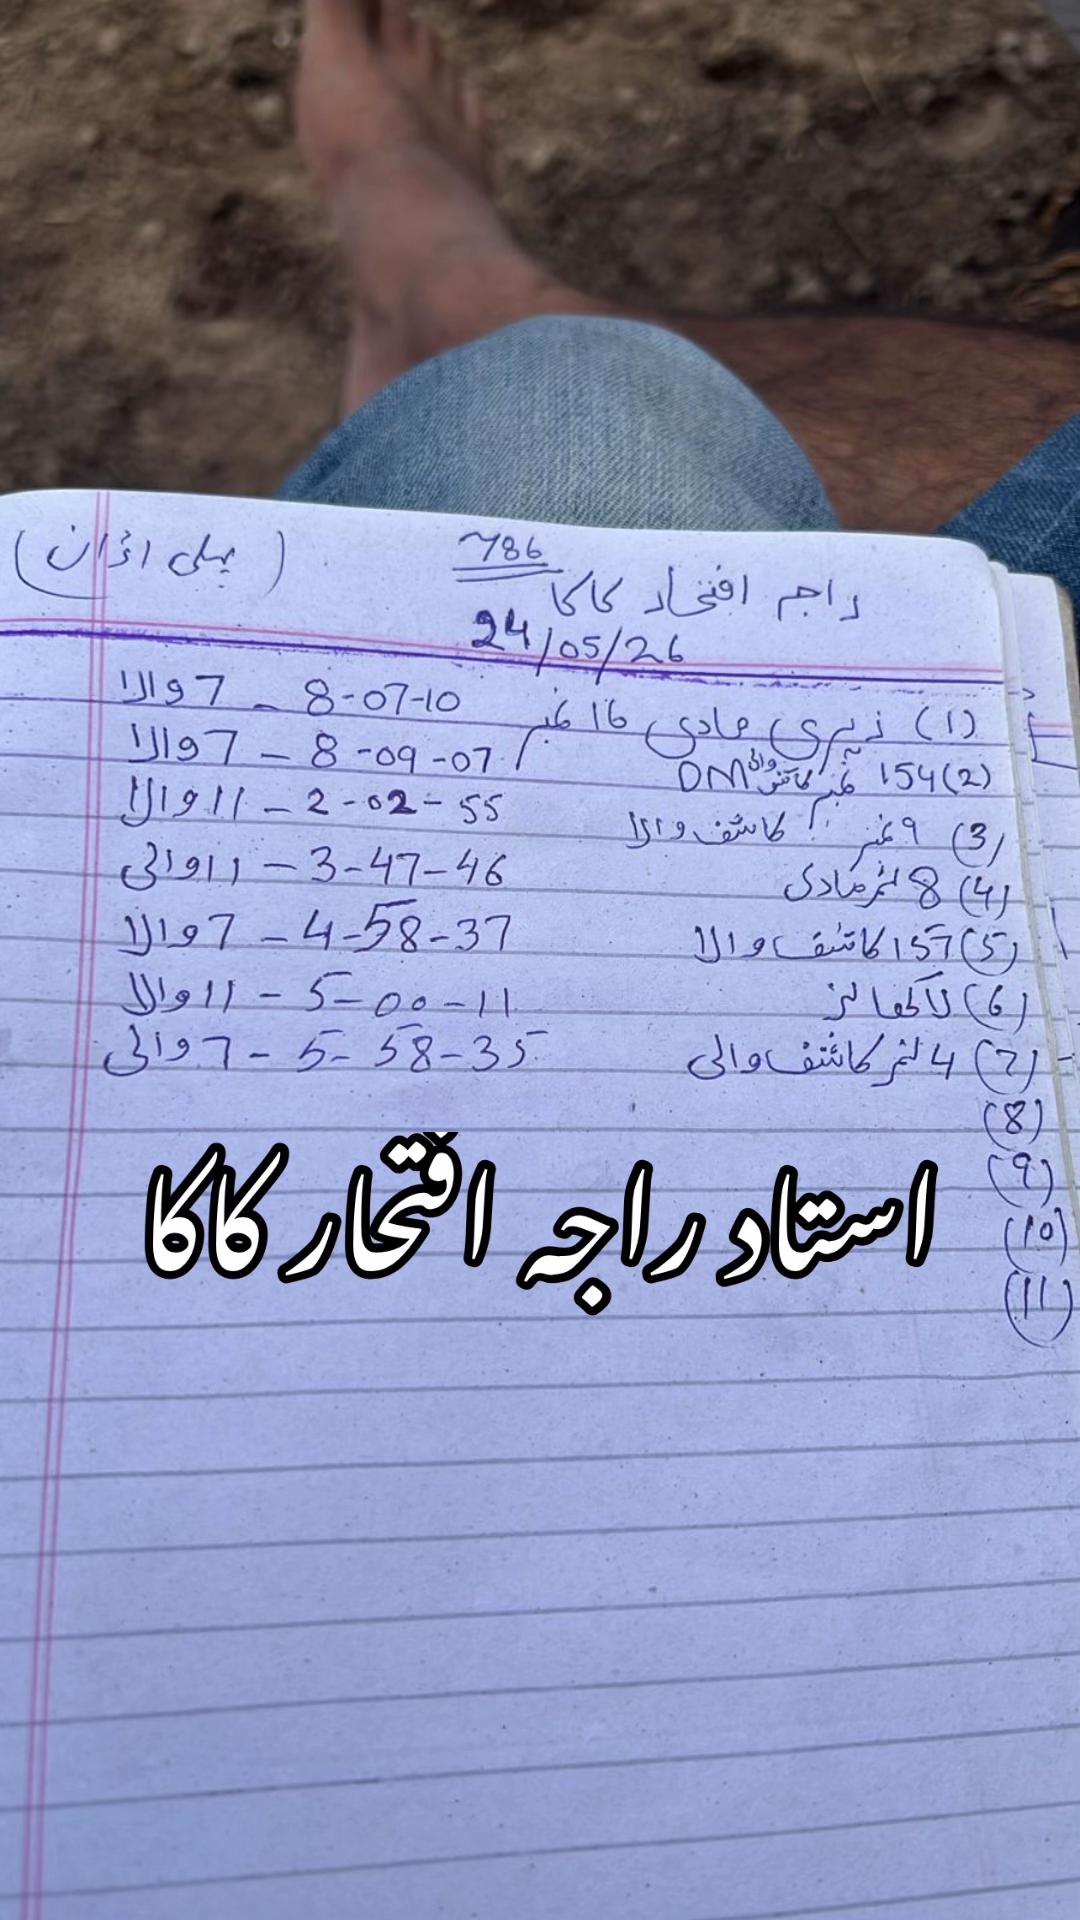 786
(پہلی اڑان)
راجہ افتخار کاکا
24/05/26
(1) زہری مادی 16 نمبر 8-07-10 - 7 والا
(2) 154 نمبر کاشف والی DM 8-09-07 - 7 والا
(3) 9 نمبر کاشف والا 2-02-55 - 11 والا
(4) 8 نمبر مادی 3-47-46 - 11 والی
(5) 157 کاشف والا 4-58-37 - 7 والا
(6) لاکھا نر 5-00-11 - 11 والا
(7) 4 نمبر کاشف والی 5-58-35 - 7 والی
(8)
(9)
استاد راجہ افتخار کاکا
(10)
(11)